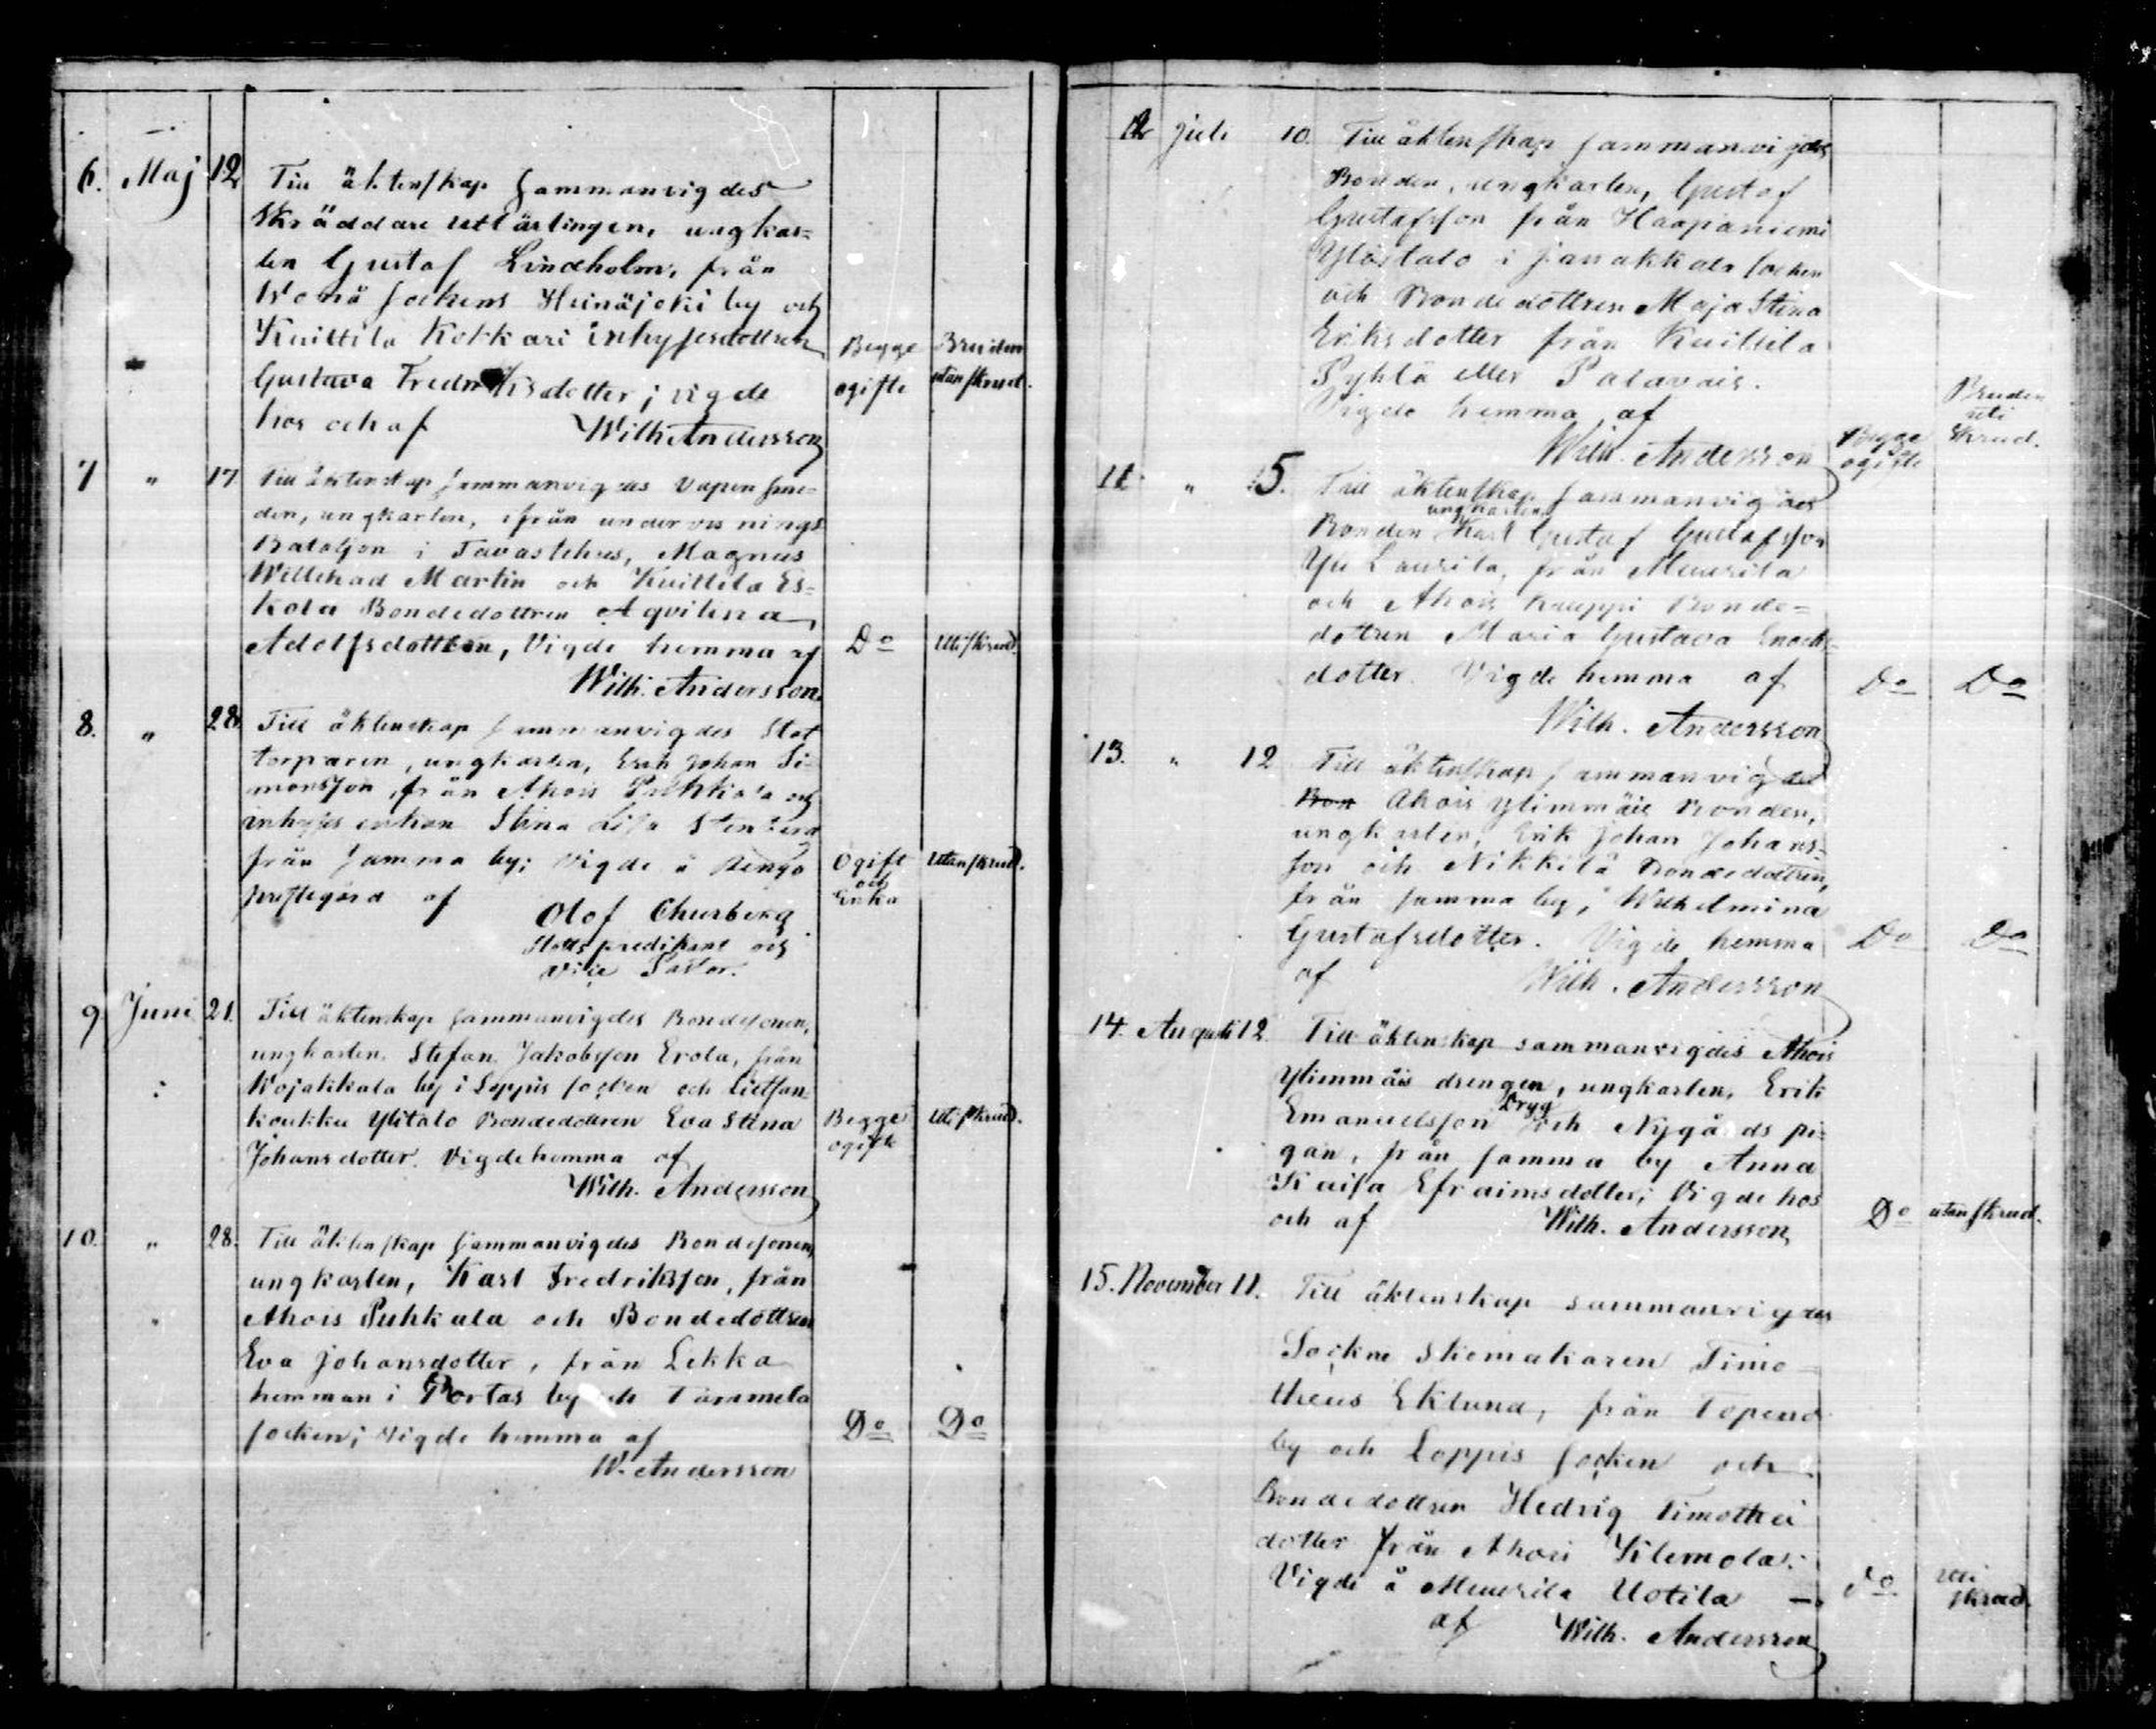 6. Maj 12 Till äktenskap sammanvigdes
Skräddare utlärlingen, ungkar=
len Gustaf Lindholm, från
Wonå sockens Heinäjoki by och
Kuittila Kokkari inhysesdottren
Gustava Fredriksdotter; vigde
hos och af Wilh Andersson
Begge ogifte
Bruden utan skrud.
7 " 17 Till äktenskap sammanvigdes Vapensme-
den, ungkarlen, ifrån undervisnings
Bataljon i Tavastehus, Magnus
Willehad Martin och Kuittila Es=
kola Bondedottren Aqvilina
Adolfsdotter, Vigde hemma af
Do uti skrud.
Wilh. Andersson.
8. " 28 Till äktenskap sammanvigdes Stat
torparen, ungkarlen, Erik Johan Si-
monsson, från Ahois och
inhyses enkan Stina Lisa
från samma by; Vigde å Rengo
prestegård af Olof Churberg
Ogift och Enka
utan skrud.
Slotts predikant och
Vice Pastor.
9 Juni 21. Till äktenskap sammanvigdes Bondesonen,
ungkarlen, Stefan Jakobsson Erola, från
Wojakkala by i Loppis socken och
koukku Ylitalo Bondedottren Eva Stina
Johansdotter. Vigde hemma af
Begge ogifte
uti skrud.
Wilh. Andersson
10. " 28. Till äktenskap sammanvigdes Bondesonen,
ungkarlen, Karl Fredriksson, från
Ahois Puhkala och Bondedottren
Eva Johansdotter, från Lekka
hemman i Portas by och Tammela
socken; Vigde hemma af
Do Do
W. Andersson
Juli 10. Till äktenskap sammanvigdes
Bonden, ungkarlen, Gustaf
Gustafsson från Haapaniemi
Ylöstalo i Janakkala socken
och Bondedottren Maja Stina
Eriksdotter från Kuittila
Pyhlä eller Palavais.
Vigde hemma af
Wilh. Andersson
Begge ogifte
Bruden uti skrud.
" 5. Till äktenskap sammanvigdes
Bonden ungkarlen Karl Gustaf Gustafsson
Yli Laurila, från Meurila
och Ahois Kauppi Bonde=
dottren Maria Gustava Enochs-
dotter. Vigde hemma af
Do Do
Wilh. Andersson
13. " 12 Till äktenskap sammanvigdes
Bon Ahois Ylimmäis Bonden,
ungkarlen, Erik Johan Johans=
son och Nikkilä Bondedottren,
från samma by, Wilhelmina
Gustafsdotter. Vigde hemma
Do Do
af Wilh. Andersson
14. Augusti 12. Till äktenskap sammanvigdes Ahois
Ylimmäis drengen, ungkarlen, Erik
Emanuelsson Dryg och Nygårds pi-
gan, från samma by Anna
Kaisa Efraimsdotter; Vigde hos
och af Wilh. Andersson
Do utan skrud.
15. November 11. Till äktenskap sammanvigdes
Sockne Skomakaren Timo-
theus Eklund, från Topeno
by och Loppis socken och
Bondedottren Hedvig Timothei
dotter från Ahois Kilemola:
Vigde å Meurila Uotila —
Do uti skrud
af Wilh. Andersson